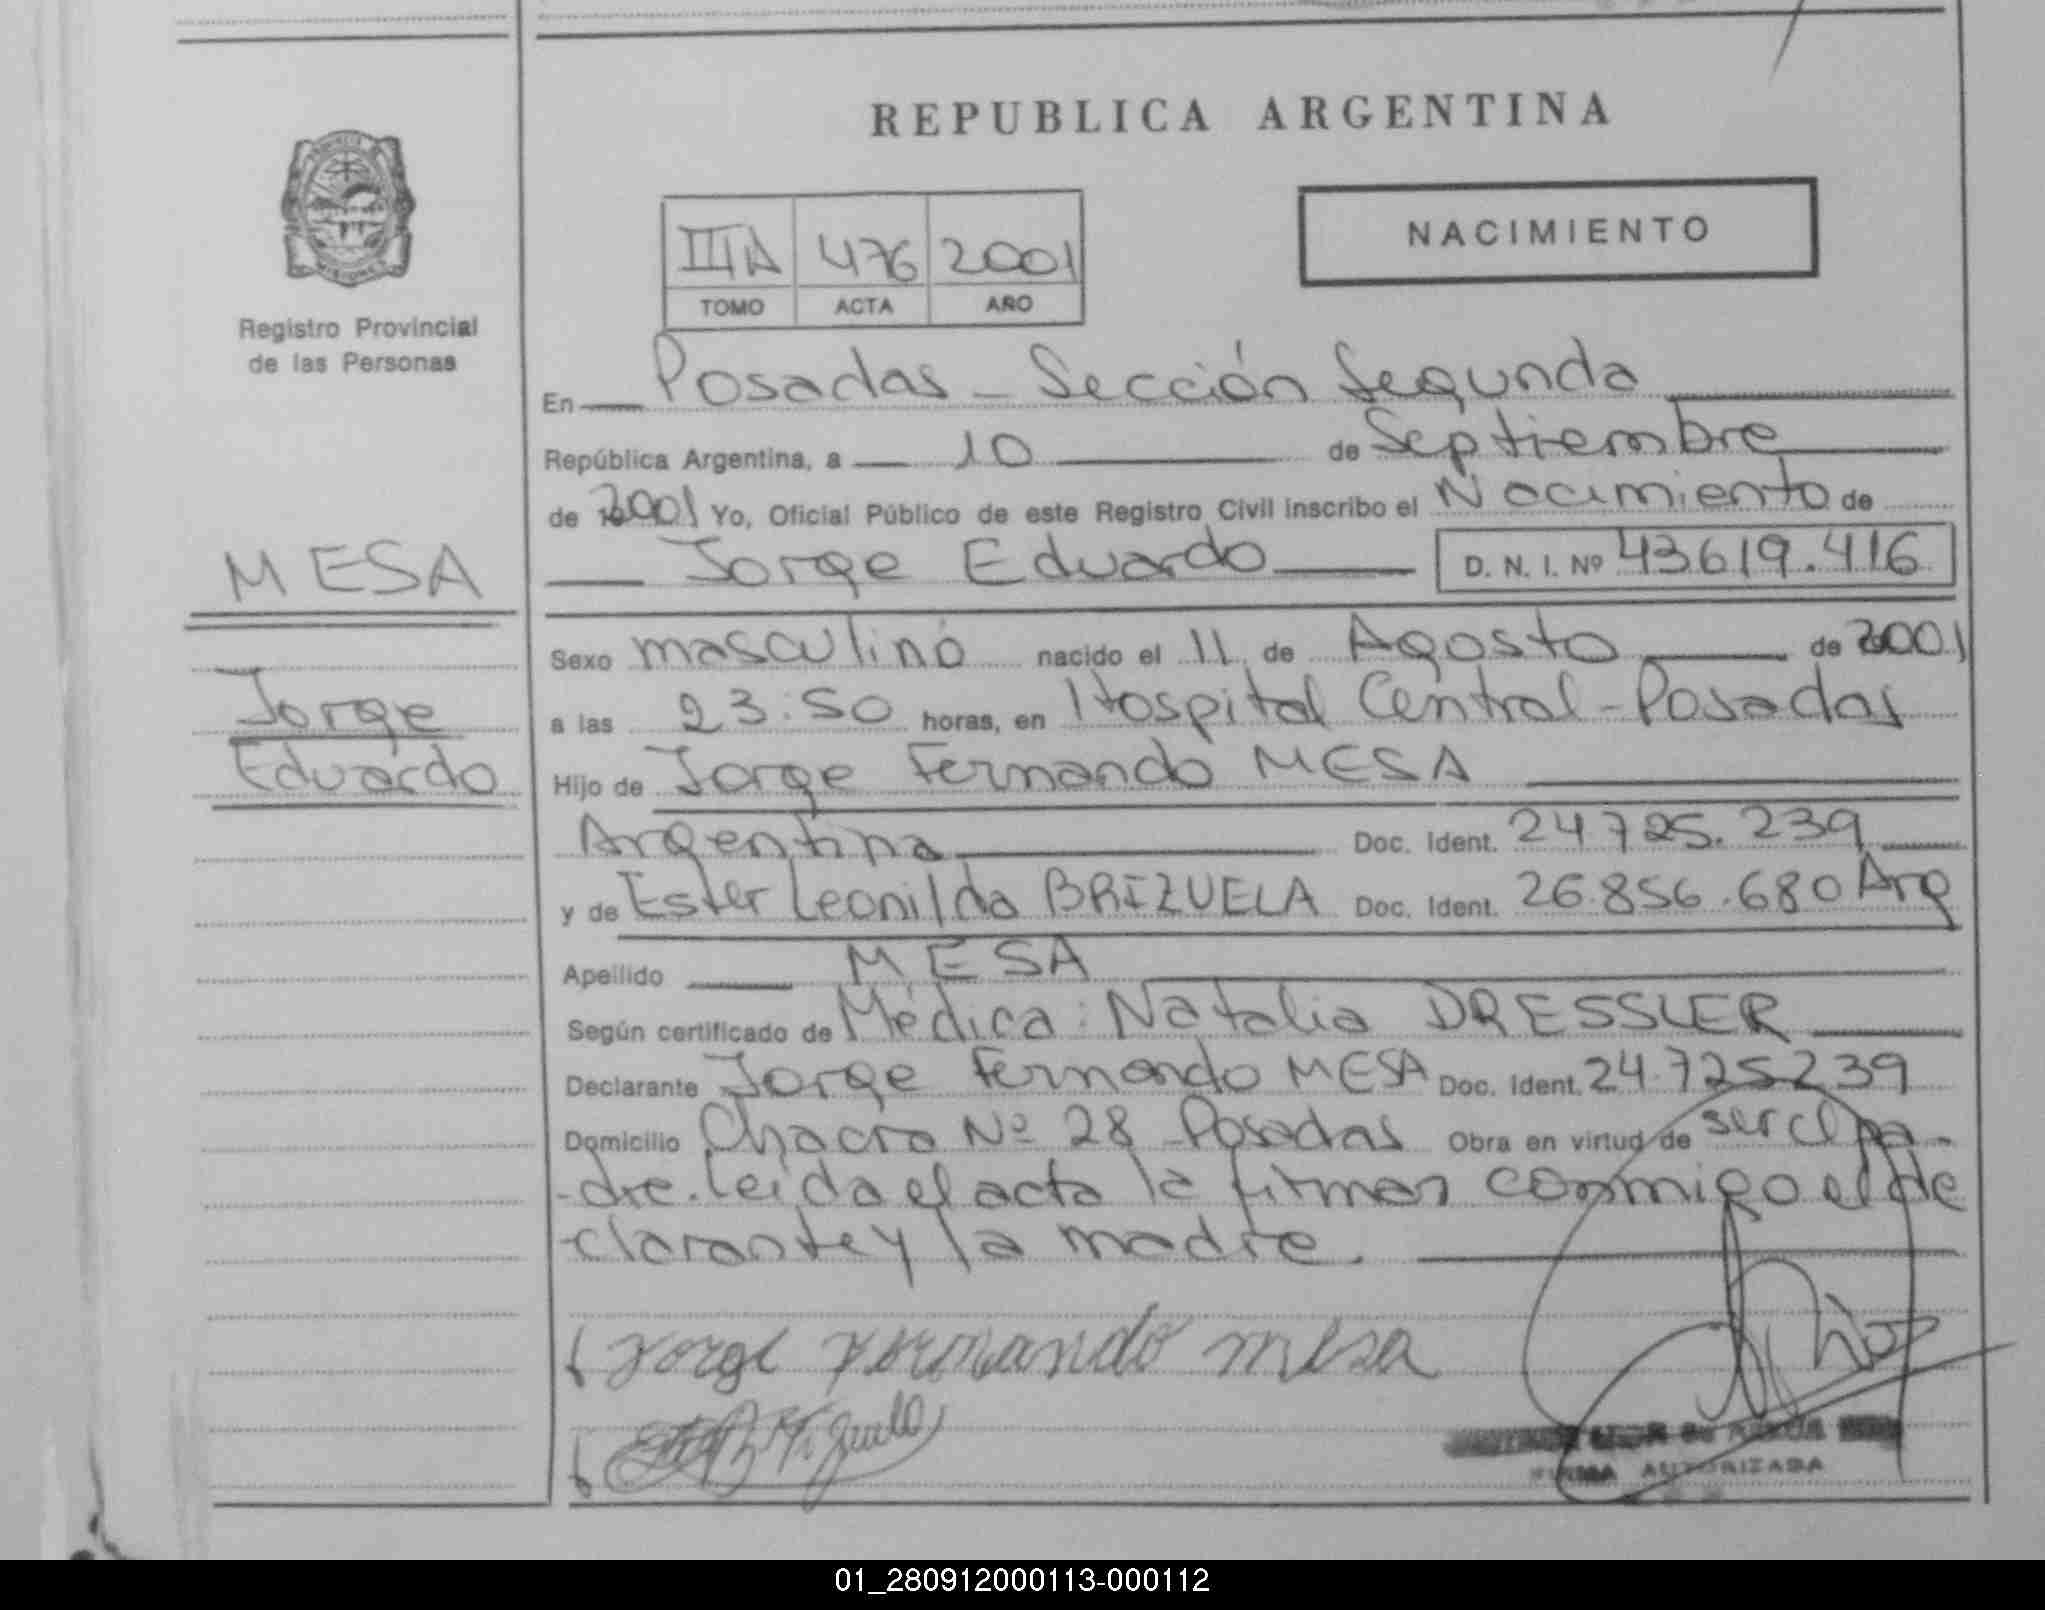 REPUBLICA ARGENTINA
NACIMIENTO
IIIA 476 2001
TOMO ACTA AÑO
PROVINCIA DE
MISIONES
Registro Provincial
de las Personas
MESA
Jorge
Eduardo
En Posadas - Sección Segunda
República Argentina, a 10 de Septiembre
de 2001 Yo, Oficial Público de este Registro Civil inscribo el Nacimiento de
Jorge Eduardo D. N. I. Nº 43619.416
Sexo masculino nacido el 11 de Agosto de 2001
a las 23:50 horas, en Hospital Central - Posadas
Hijo de Jorge Fernando MESA
Argentina Doc. Ident. 24725.239
y de Ester Leonilda BRIZUELA Doc. Ident. 26.856.680 Arg
Apellido MESA
Según certificado de Médica: Natalia DRESSLER
Declarante Jorge Fernando MESA Doc. Ident. 24.725239
Domicilio Chacra Nº 28 Posadas Obra en virtud de ser el pa-
-dre. Leida el acta la firman conmigo el de
-clarante y la madre.
Jorge Fernando mesa
FIRMA AUTORIZADA
01_280912000113-000112